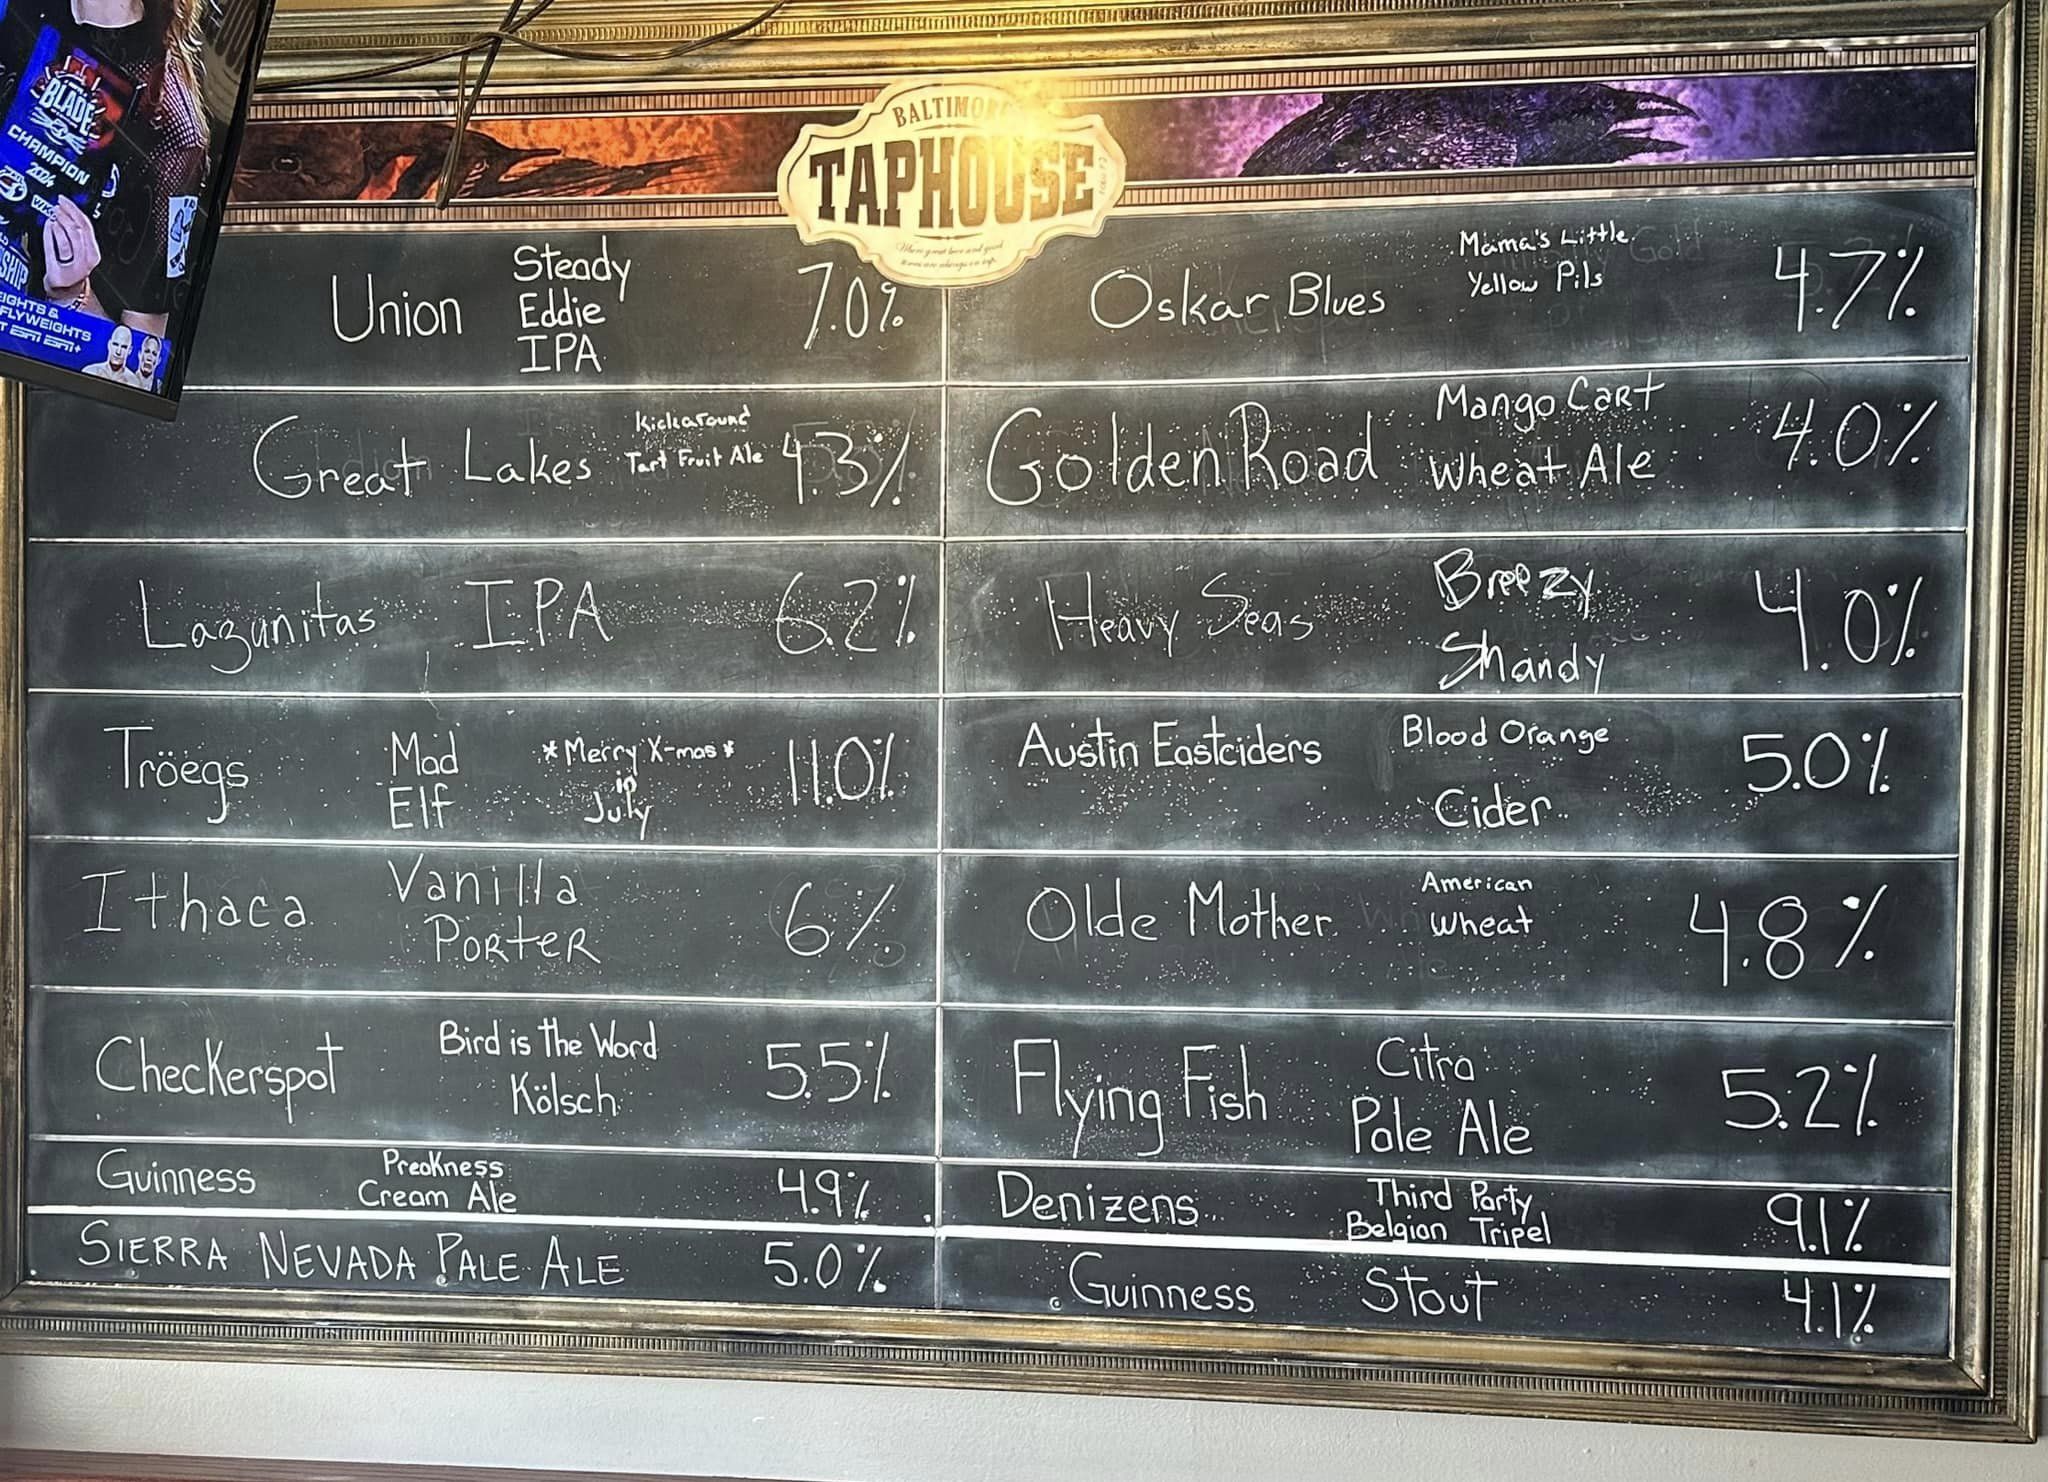 BLADE
CHAMPION
2024
FLYWEIGHTS
BALTIMORE
TAPHOUSE
Union Steady Eddie IPA 7.0%
Great Lakes Kickaround Tart Fruit Ale 4.3%
Lagunitas IPA 6.2%
Tröegs Mad Elf *Merry X-mas* in July 11.0%
Ithaca Vanilla Porter 6%
Checkerspot Bird is the Word Kölsch 5.5%
Guinness Preakness Cream Ale 4.9%
Sierra Nevada Pale Ale 5.0%
Oskar Blues Mama's Little Yellow Pils 4.7%
Golden Road Mango Cart Wheat Ale 4.0%
Heavy Seas Breezy Shandy 4.0%
Austin Eastciders Blood Orange Cider 5.0%
Olde Mother American Wheat 4.8%
Flying Fish Citra Pale Ale 5.2%
Denizens Third Party Belgian Tripel 9.1%
Guinness Stout 4.1%